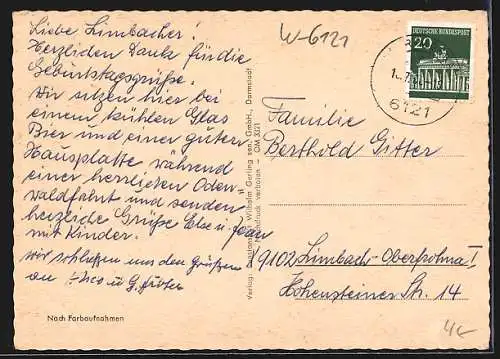 Liebe Limbacher!
Herzlichen Dank für die
Geburtstagsgrüße.
Wir sitzen hier bei
einem kühlen Glas
Bier und einer guten
Hausplatte während
einer herrlichen Oden-
waldfahrt und senden
herzliche Grüße Else u.
mit Kinder.
wir schließen uns den Grüßen
an u. G.
Nach Farbaufnahmen
Verlag: Wilhelm Gerling sen. GmbH., Darmstadt
Nachdruck verboten — OM 3321
W-6121
DEUTSCHE BUNDESPOST
20
6121
Familie
Berthold Gitter
9102 Limbach-Oberfrohna 1,
Hohensteiner Str. 14